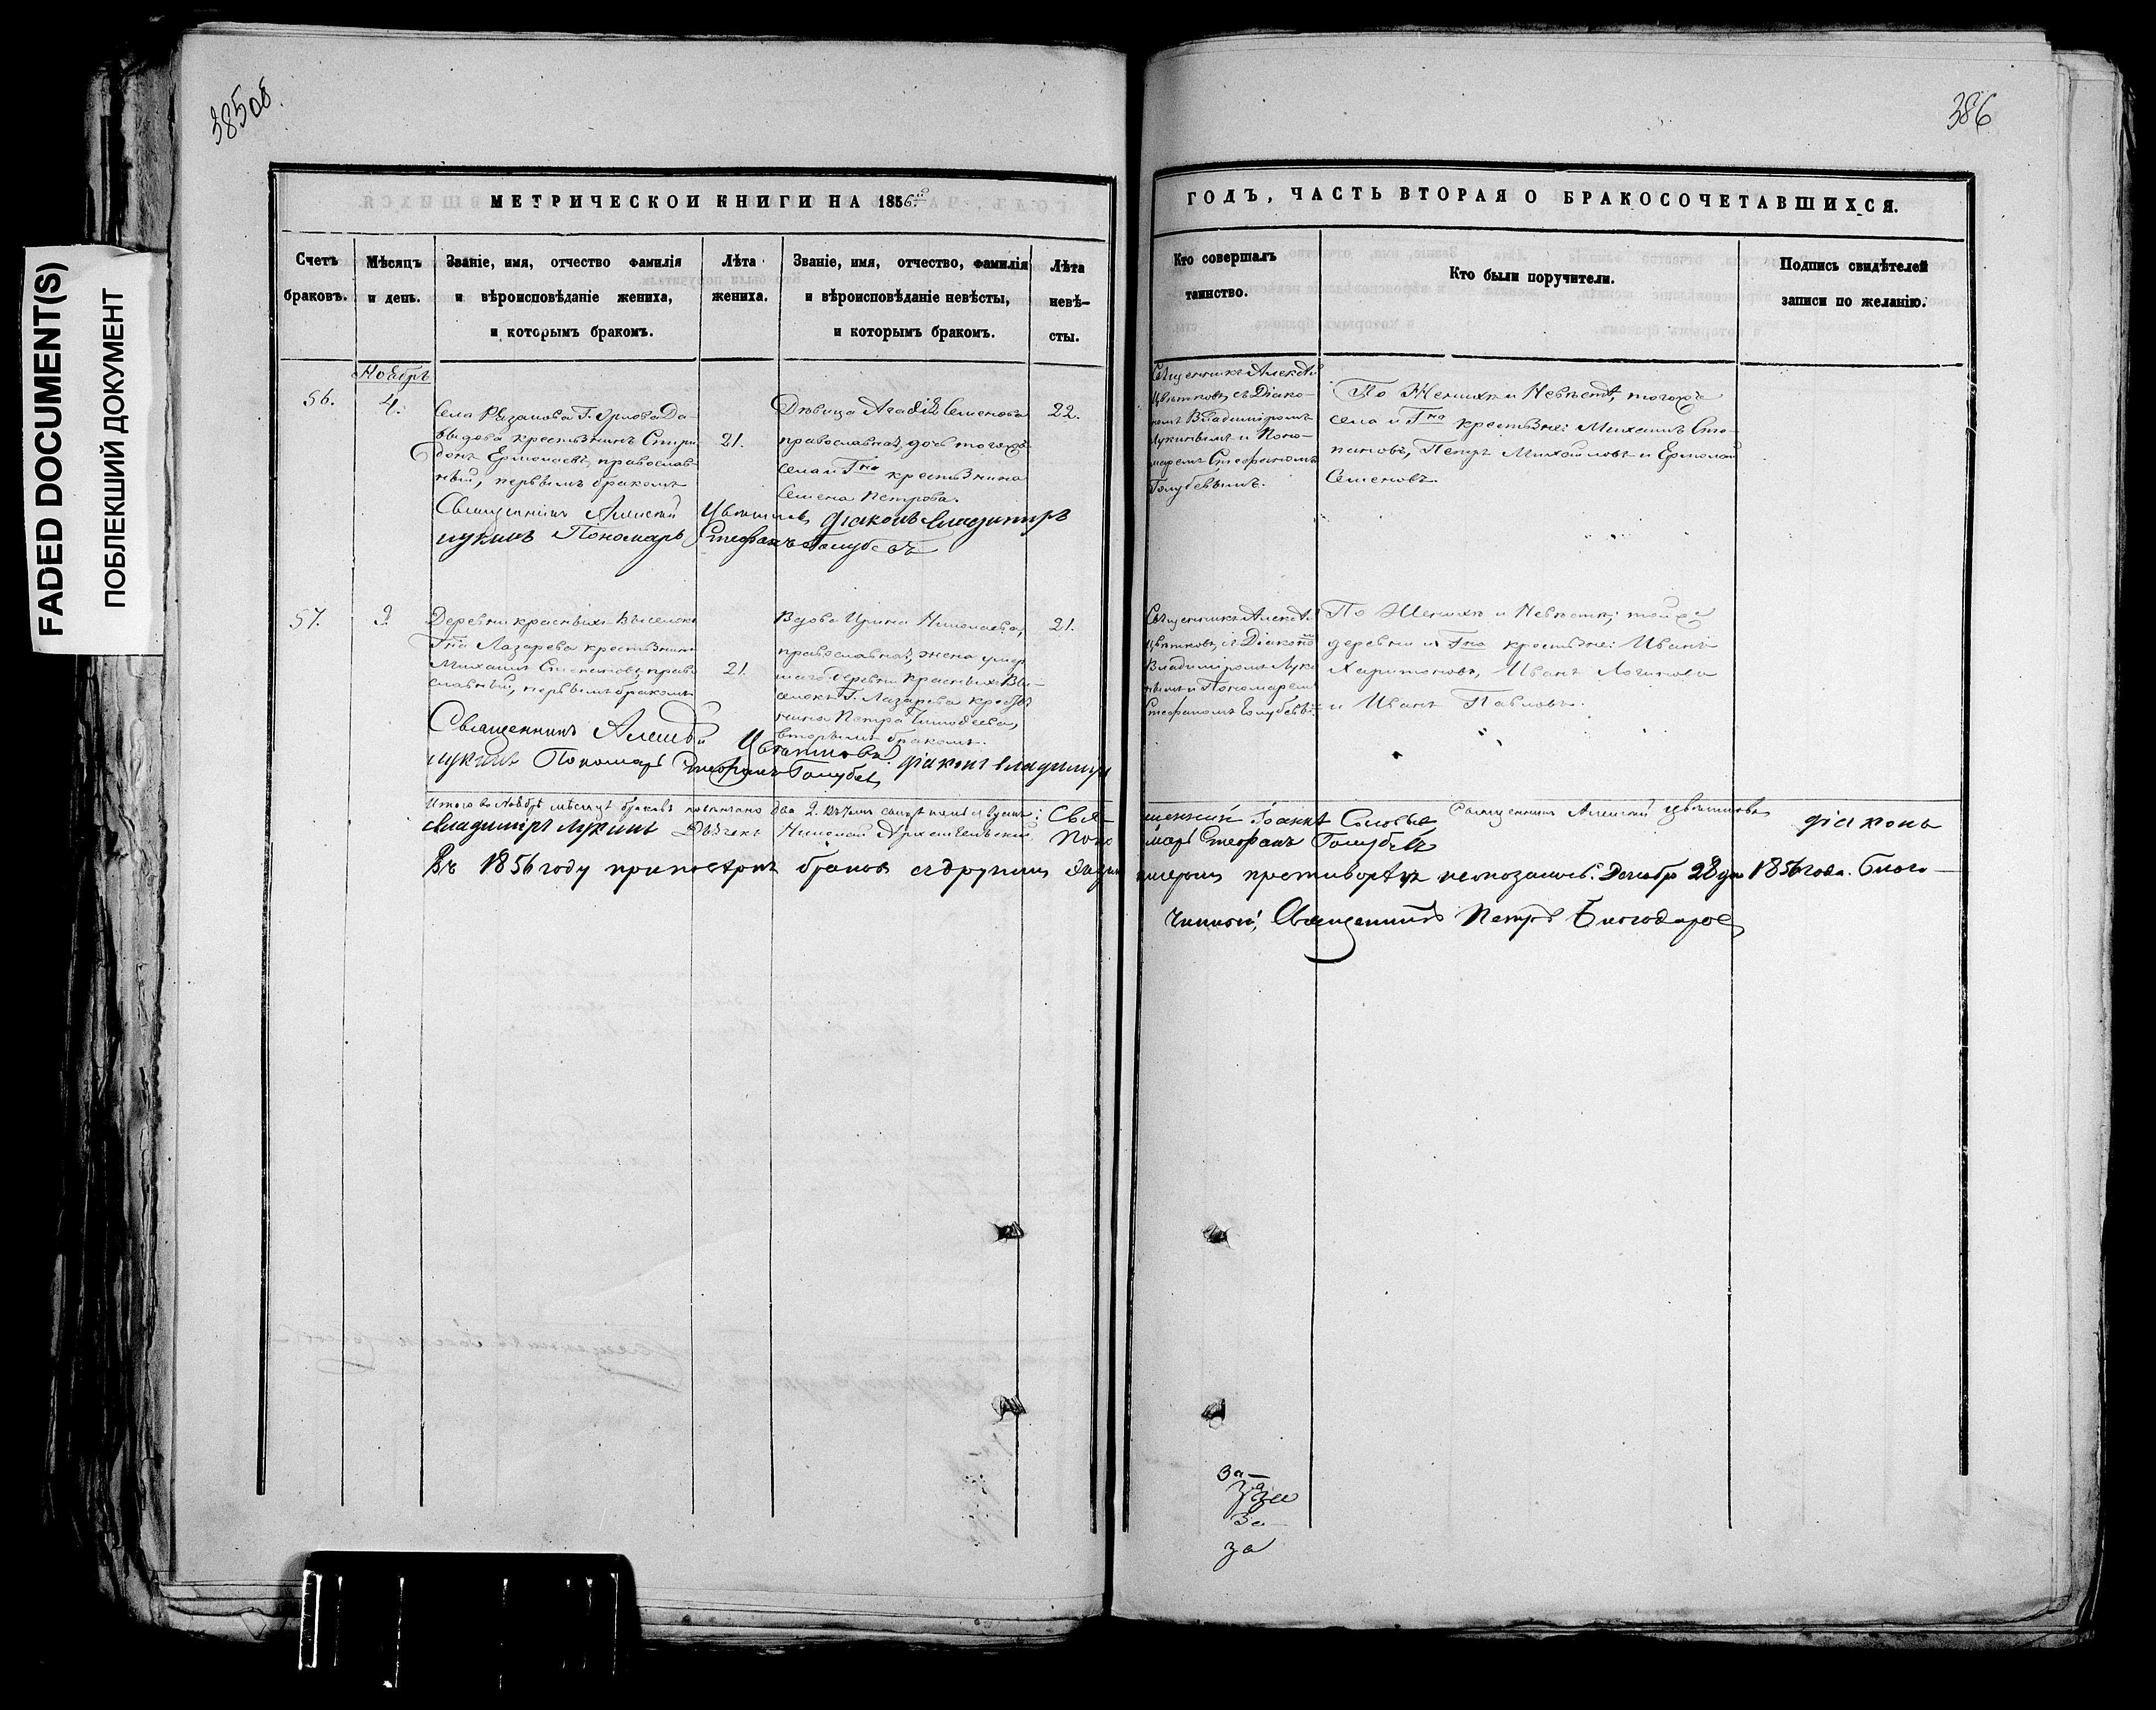 FADED DOCUMENT(S)
ПОБЛЕКШИЙ ДОКУМЕНТ
385об.
386
МЕТРИЧЕСКОЙ КНИГИ НА 1856й
ГОДЪ, ЧАСТЬ ВТОРАЯ О БРАКОСОЧЕТАВШИХСЯ.
Счетъ
браковъ.
Мѣсяцъ
и день.
Званіе, имя, отчество фамилія
и вѣроисповѣданіе жениха,
и которымъ бракомъ.
Лѣта
жениха.
Званіе, имя, отчество, фамилія
и вѣроисповѣданіе невѣсты,
и которымъ бракомъ.
Лѣта
невѣ-
сты.
Кто совершалъ
таинство.
Кто были поручители.
Подпись свидѣтелей
записи по желанію.
Ноябрь
56.
4.
Села Рязанова Г. Орлова Да-
выдова крестьянинъ Спири-
донъ Ермолаевъ, православ-
ный, первымъ бракомъ
21.
Дѣвица Агафія Семенова
православная, дочь тогожъ
села и Гна крестьянина
Семена Петрова.
22.
Священникъ Алексѣй
Цвѣтковъ, съ Діако-
номъ Владиміромъ
Лукинымъ и Поно-
маремъ Стефаномъ
Голубевымъ.
По Женихѣ и Невѣстѣ, тогожъ
села и Гна крестьяне: Михаилъ Сте-
пановъ, Петръ Михайловъ и Ермолай
Семеновъ.
Священникъ Алексѣй Цвѣтковъ, діаконъ Владимиръ
Лукинъ Пономарь Стефанъ Голубевъ
57.
Деревни красныхъ Выселокъ
Гна Лазарева крестьянинъ
Михаилъ Степановъ, право-
славный, первымъ бракомъ
21.
Вдова Ирина Николаева,
православная, жена умер-
шаго деревни красныхъ Вы-
селокъ Г. Лазарева крестья-
нина Петра Тимофеева,
вторымъ бракомъ.
21.
Священникъ Алексѣй
Цвѣтковъ, съ Діакономъ
Владиміромъ Луки-
нымъ и Пономаремъ
Стефаномъ Голубевымъ
По Женихѣ и Невѣстѣ, тойже
деревни и Гна крестьяне: Иванъ
Харитоновъ, Иванъ Логиновъ
и Иванъ Павловъ.
Священникъ Алексѣй Цвѣтковъ діаконъ Владимиръ
Лукинъ Пономарь Стефанъ Голубевъ
Итого въ Ноябрѣ мѣсяцѣ браковъ повѣнчано два 2. Свя-
щенникъ Іоаннъ Священникъ Алексѣй Цвѣтковъ діаконъ
Владимиръ Лукинъ Дьячекъ Николай Архангельскій Поно
марь Стефанъ Голубевъ
Въ 1856 году при браковъ съ другими противорѣчія неоказалось. Декабря 28 дня 1856 года. Благо-
чинный, Священникъ Петръ
За-
За
За
За